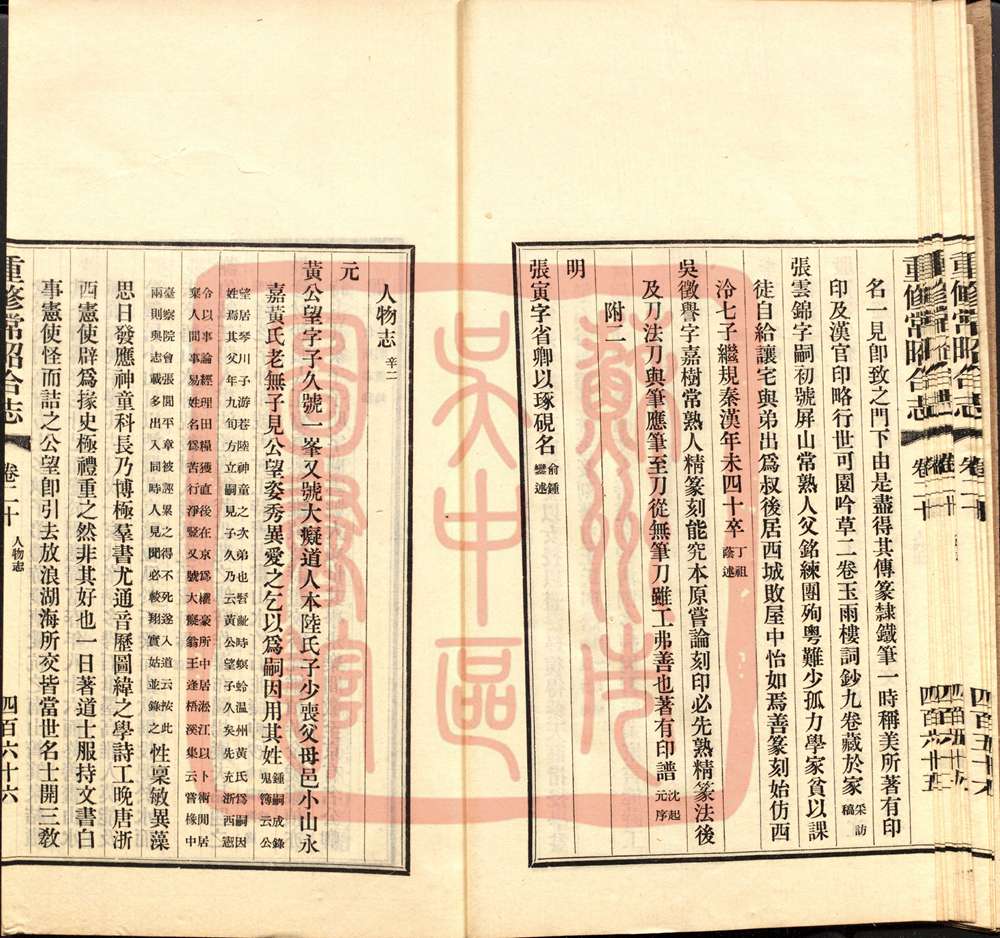 名一見卽致之門下由是盡得其傳篆隸鐵筆一時稱美所著有印
印及漢官印略行世可園吟草二卷玉雨樓詞鈔九卷藏於家采訪稿
張雲錦字嗣初號屏山常熟人父銘練團殉粵難少孤力學家貧以課
徒自給讓宅與弟出爲叔後居西城敗屋中怡如焉善篆刻始仿西
泠七子繼規秦漢年未四十卒丁祖蔭述
吳徵譽字嘉樹常熟人精篆刻能究本原嘗論刻印必先熟精篆法後
及刀法刀與筆應筆至刀從無筆刀雖工弗善也著有印譜沈起元序
附二
明
張寅字省卿以琢硯名俞鍾鑾述
重修常昭合志
卷二十
人物志辛二
元
黃公望字子久號一峯又號大癡道人本陸氏子少喪父母邑小山永
嘉黃氏老無子見公望姿秀異愛之乞以爲嗣因用其姓鍾嗣成錄鬼簿云公
望居琴川子游若陸神童之次弟也髫齔時螟蛉温州黃氏爲嗣因
姓焉其父年九旬方立嗣見子久乃云黃公望子久矣先充浙西憲
令以事論經理田糧獲直後在京爲權豪所中居淞江以卜術閒居
棄人間事易姓名爲苦行淨豎又號大癡翁王逢梧溪集云嘗椽中
臺察院會張閭平章被誣累之得不死遂入道云按此
兩則與志載多出入同時人見聞必較翔實姑並錄之性稟敏異藻
思日發應神童科長乃博極羣書尤通音歷圖緯之學詩工晚唐浙
西憲使辟爲掾史極禮重之然非其好也一日著道士服持文書白
事憲使怪而詰之公望卽引去放浪湖海所交皆當世名士開三敎
重修常昭合志
卷二十
人物志
四百六十六